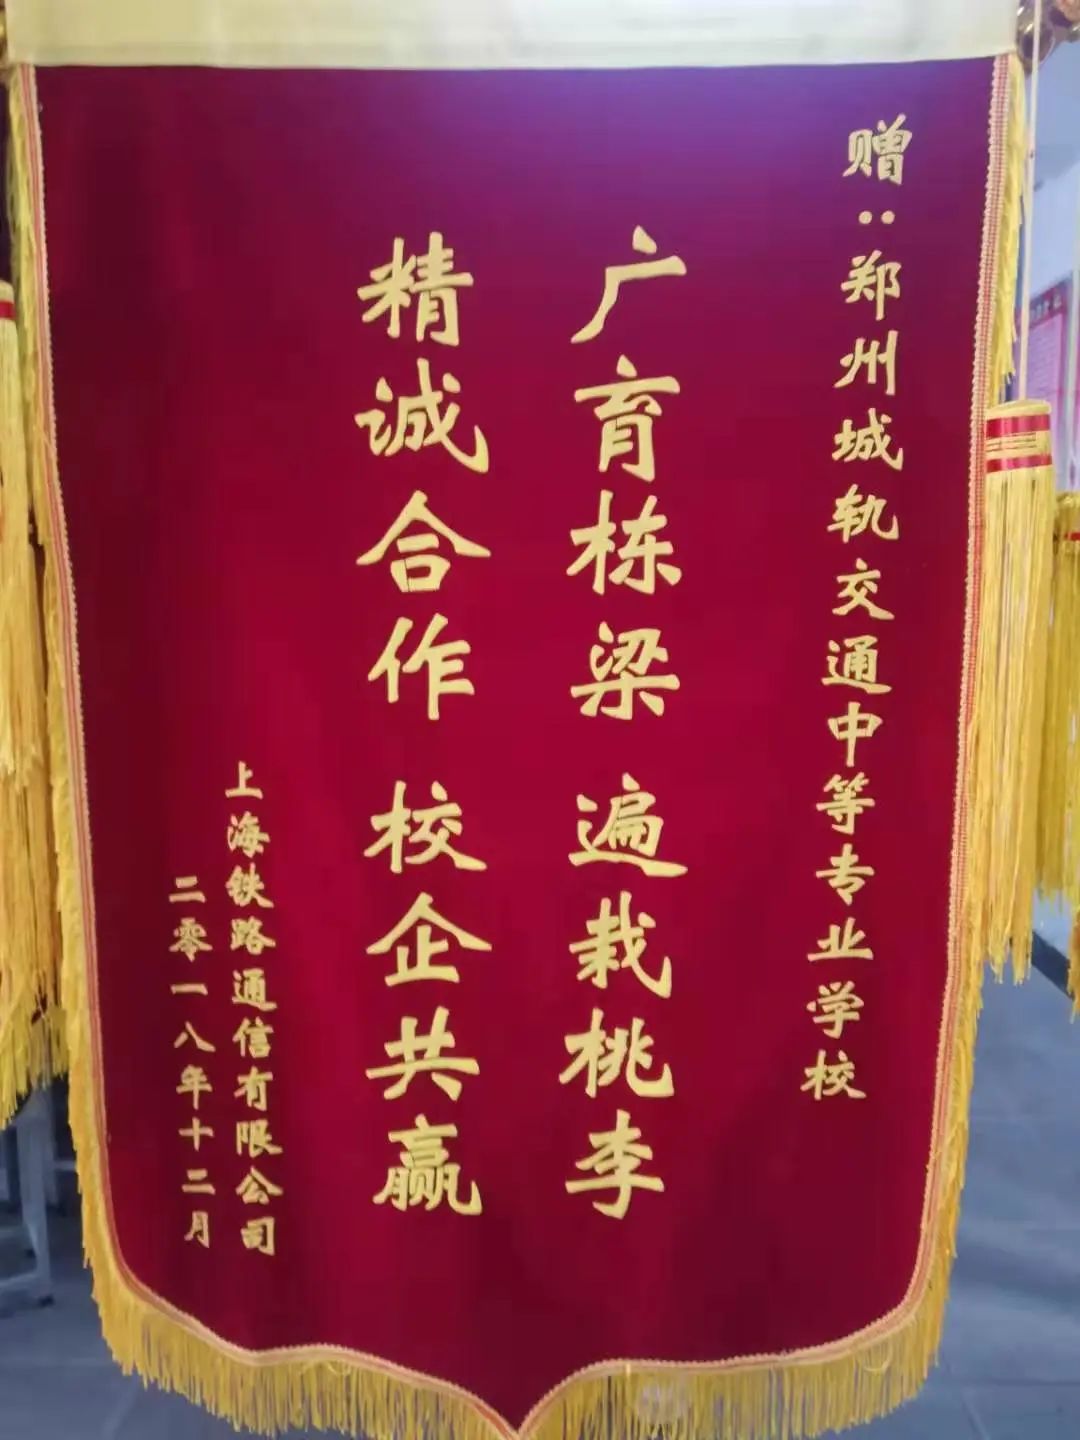 赠：郑州城轨交通中等专业学校
广育栋梁 遍栽桃李
精诚合作 校企共赢
上海铁路通信有限公司
二零一八年十二月